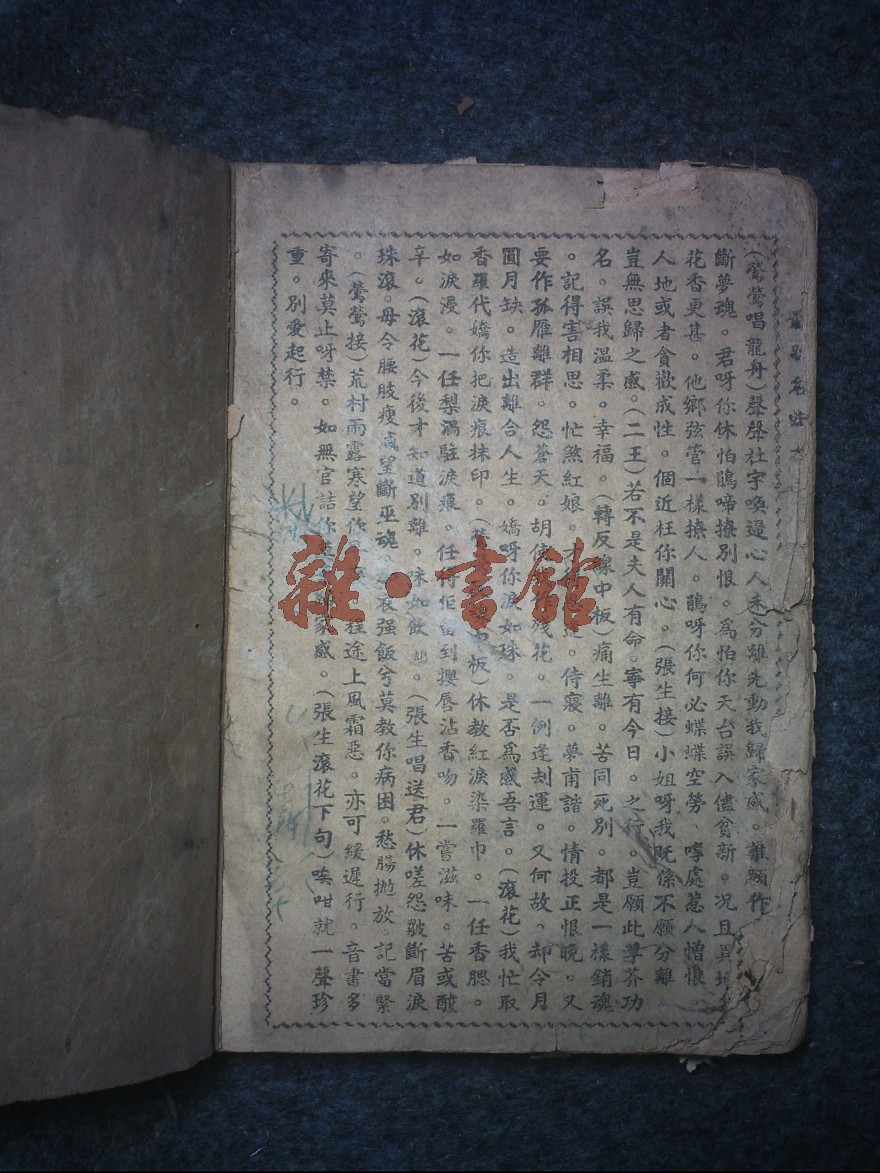 (鶯鶯唱龍舟)聲聲杜宇喚邊心人未分離先動我歸家感。難顧作
斷夢魂。君呀你休怕鵑啼撩別恨。為怕你天台誤入儘貧新。况且異地
花香更甚。他鄉弦管一樣撩人。鵑呀你何必蝶蝶空勞。嘑處惹人憎恨。
人地或者貪歡成性。個近枉你關心。(張生接)小姐呀我既係不願分離
豈無思歸之感。(二王)若不是夫人有命。寧有今日。之行。豈願此草芥功
名。誤我溫柔。幸福。(轉反線中板)痛生離。苦同死別。都是一樣銷魂
。記得害相思。忙煞紅娘。侍寢。夢甫諧。情投正恨晚。又
要作孤雁離群。怨蒼天。胡使殘花。一例逢刦運。又何故。却令月
圓月缺。造出離合人生。嬌呀你淚如珠。是否為感吾言。(滾花)我忙取
香羅代嬌你把淚痕抹印。中板)休教紅淚染羅巾。一任香腮。
如淚浸。一任梨渦駐淚痕。任得佢留到櫻唇沾香吻。一嘗滋味。苦或酸
辛。(滾花)今後才知道別離。味如飲鴆。(張生唱送君)休嗟怨皺斷眉淚
珠滾。毋令腰肢瘦減望斷巫魂。衣强飯兮莫教你病困。愁腸拋放。記當緊
。(鶯鶯接)荒村雨露寒望你程途上風霜惡。亦可緩遲行。音書多
寄來莫止呀禁。如無官詰你家感。(張生滾花下句)唉咁就一聲珍
重。別愛起行。
雜·書館